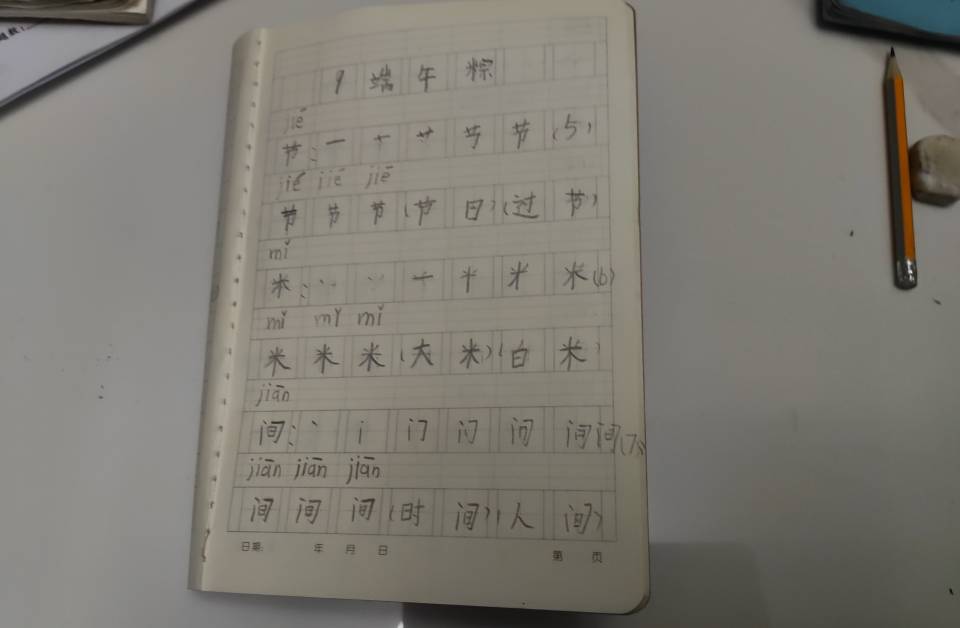 9 端午粽
jié
节：一 十 艹 艿 节 (5)
jié jié jié
节 节 节 (节日) (过节)
mǐ
米：丶 丷 䒑 半 米 米 (6)
mǐ mǐ mǐ
米 米 米 (大米) (白米)
jiān
间：丶 冫 门 闩 问 间 间 (7)
jiān jiān jiān
间 间 间 (时间) (人间)
日期： 年 月 日 第 页